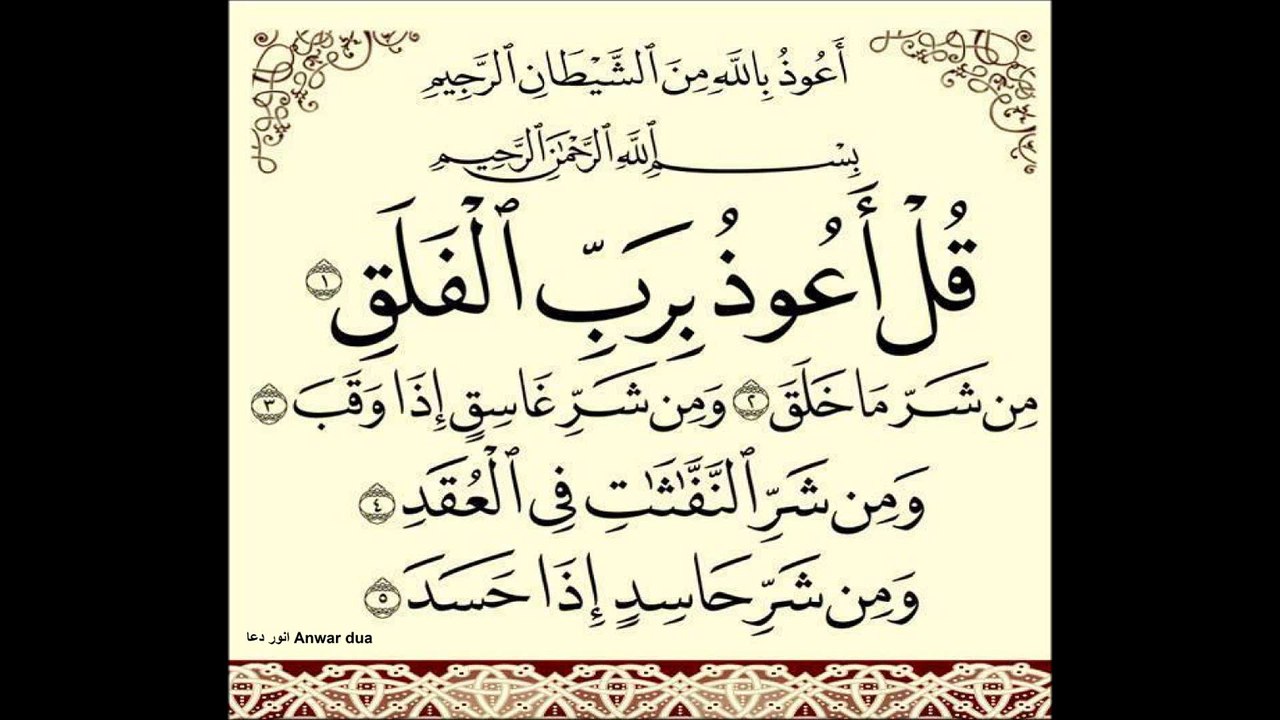 أَعُوذُ بِاللَّهِ مِنَ ٱلشَّيْطَانِ ٱلرَّجِيمِ
بِسْمِ ٱللَّهِ ٱلرَّحْمَٰنِ ٱلرَّحِيمِ
قُلْ أَعُوذُ بِرَبِّ ٱلْفَلَقِ ١
مِن شَرِّ مَا خَلَقَ ٢ وَمِن شَرِّ غَاسِقٍ إِذَا وَقَبَ ٣
وَمِن شَرِّ ٱلنَّفَّٰثَٰتِ فِى ٱلْعُقَدِ ٤
وَمِن شَرِّ حَاسِدٍ إِذَا حَسَدَ ٥
انور دعا Anwar dua